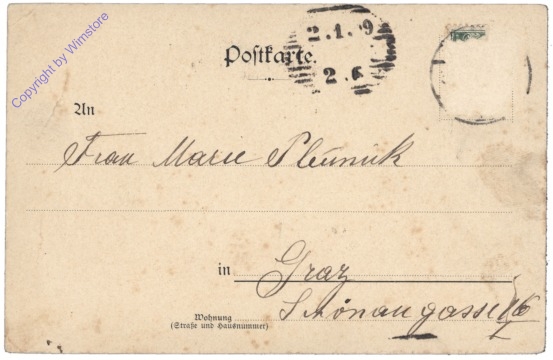 Copyright by Wimstore
2.1.9
Postkarte.
2.6
An
Frau Marie
in Graz
Schönaugasse
Wohnung
(Straße und Hausnummer)